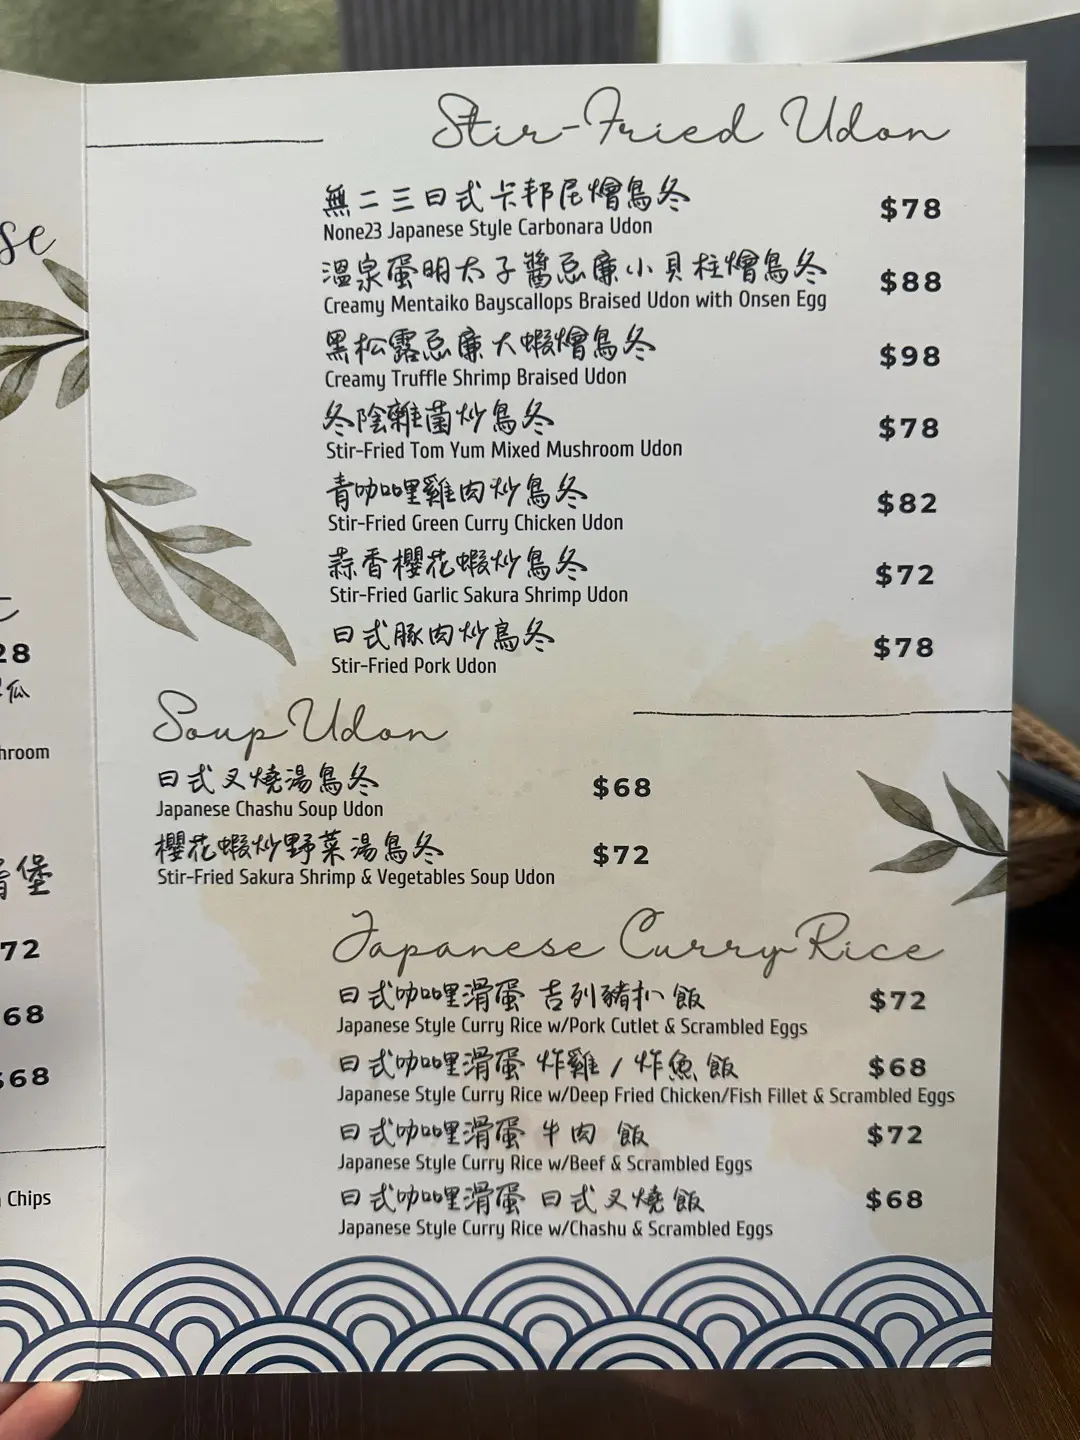 se
28
瓜
hroom
堡
72
68
$68
Chips
Stir-Fried Udon
無二三日式卡邦尼燴烏冬 $78
None23 Japanese Style Carbonara Udon
溫泉蛋明太子醬忌廉小貝柱燴烏冬 $88
Creamy Mentaiko Bayscallops Braised Udon with Onsen Egg
黑松露忌廉大蝦燴烏冬 $98
Creamy Truffle Shrimp Braised Udon
冬陰雜菌炒烏冬 $78
Stir-Fried Tom Yum Mixed Mushroom Udon
青咖喱雞肉炒烏冬 $82
Stir-Fried Green Curry Chicken Udon
蒜香櫻花蝦炒烏冬 $72
Stir-Fried Garlic Sakura Shrimp Udon
日式豚肉炒烏冬 $78
Stir-Fried Pork Udon
Soup Udon
日式叉燒湯烏冬 $68
Japanese Chashu Soup Udon
櫻花蝦炒野菜湯烏冬 $72
Stir-Fried Sakura Shrimp & Vegetables Soup Udon
Japanese Curry Rice
日式咖喱滑蛋 吉列豬扒 飯 $72
Japanese Style Curry Rice w/Pork Cutlet & Scrambled Eggs
日式咖喱滑蛋 炸雞 / 炸魚 飯 $68
Japanese Style Curry Rice w/Deep Fried Chicken/Fish Fillet & Scrambled Eggs
日式咖喱滑蛋 牛肉 飯 $72
Japanese Style Curry Rice w/Beef & Scrambled Eggs
日式咖喱滑蛋 日式叉燒 飯 $68
Japanese Style Curry Rice w/Chashu & Scrambled Eggs